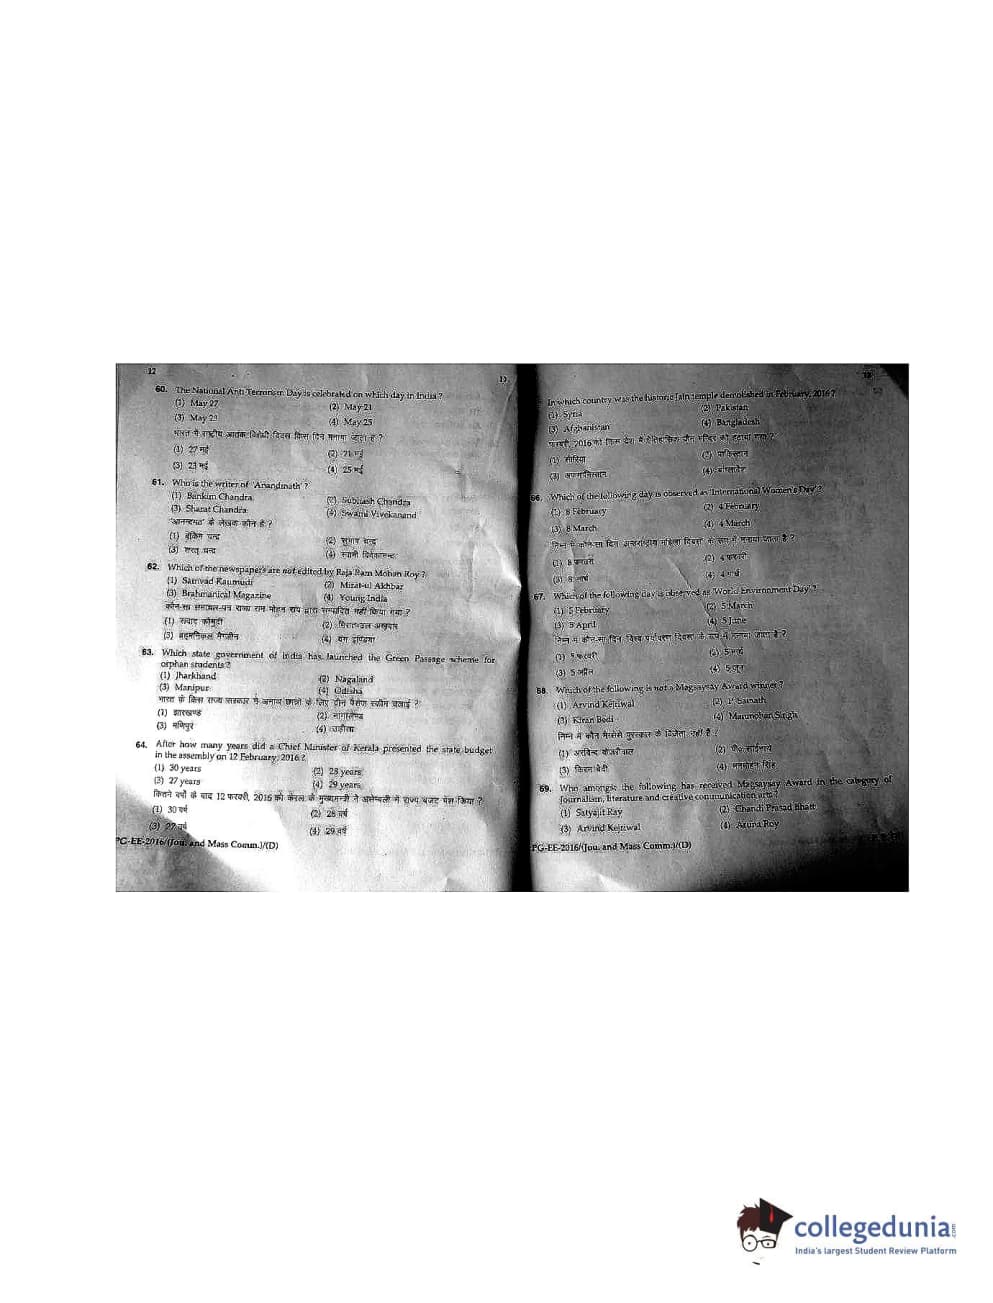 12
60. The National Anti Terrorism Day is celebrated on which day in India ?
(1) May 27 (2) May 21
(3) May 23 (4) May 25
भारत में राष्ट्रीय आतंक विरोधी दिवस किस दिन मनाया जाता है ?
(1) 27 मई (2) 21 मई
(3) 23 मई (4) 25 मई
61. Who is the writer of 'Anandmath' ?
(1) Bankim Chandra (2) Subhash Chandra
(3) Sharat Chandra (4) Swami Vivekanand
'आनन्दमठ' के लेखक कौन है ?
(1) बंकिम चन्द्र (2) सुभाष चन्द्र
(3) शरत् चन्द्र (4) स्वामी विवेकानन्द
62. Which of the newspapers are not edited by Raja Ram Mohan Roy ?
(1) Samvad Kaumudi (2) Mirat-ul Akhbar
(3) Brahmanical Magazine (4) Young India
कौन-सा समाचार-पत्र राजा राम मोहन राय द्वारा सम्पादित नहीं किया गया ?
(1) संवाद कौमुदी (2) मिरातउल अखबार
(3) ब्रह्मनिकल मैगजीन (4) यंग इण्डिया
63. Which state government of India has launched the Green Passage scheme for
orphan students ?
(1) Jharkhand (2) Nagaland
(3) Manipur (4) Odisha
भारत के किस राज्य सरकार ने अनाथ छात्रों के लिए ग्रीन पैसेज स्कीम चलाई ?
(1) झारखण्ड (2) नागालैण्ड
(3) मणिपुर (4) उड़ीसा
64. After how many years did a Chief Minister of Kerala presented the state budget
in the assembly on 12 February, 2016 ?
(1) 30 years (2) 28 years
(3) 27 years (4) 29 years
कितने वर्षों के बाद 12 फरवरी, 2016 को केरल के मुख्यमन्त्री ने असेम्बली में राज्य बजट पेश किया ?
(1) 30 वर्ष (2) 28 वर्ष
(3) 27 वर्ष (4) 29 वर्ष
PG-EE-2016/(Jou. and Mass Comm.)/(D)
In which country was the historic Jain temple demolished in February, 2016 ?
(1) Syria (2) Pakistan
(3) Afghanistan (4) Bangladesh
फरवरी, 2016 को किस देश में ऐतिहासिक जैन मन्दिर को हटाया गया ?
(1) सीरिया (2) पाकिस्तान
(3) अफगानिस्तान (4) बांग्लादेश
66. Which of the following day is observed as 'International Women's Day' ?
(1) 8 February (2) 4 February
(3) 8 March (4) 4 March
निम्न में कौन-सा दिन अन्तर्राष्ट्रीय महिला दिवस के रूप में मनाया जाता है ?
(1) 8 फरवरी (2) 4 फरवरी
(3) 8 मार्च (4) 4 मार्च
67. Which of the following day is observed as 'World Environment Day' ?
(1) 5 February (2) 5 March
(3) 5 April (4) 5 June
निम्न में कौन-सा दिन विश्व पर्यावरण दिवस के रूप में मनाया जाता है ?
(1) 5 फरवरी (2) 5 मार्च
(3) 5 अप्रैल (4) 5 जून
68. Which of the following is not a Magsaysay Award winner ?
(1) Arvind Kejriwal (2) P Sainath
(3) Kiran Bedi (4) Manmohan Singh
निम्न में कौन मैग्सेसे पुरस्कार के विजेता नहीं है ?
(1) अरविन्द केजरीवाल (2) पी० साईनाथ
(3) किरन बेदी (4) मनमोहन सिंह
69. Who amongst the following has received Magsaysay Award in the category of
Journalism, literature and creative communication arts ?
(1) Satyajit Ray (2) Chandi Prasad Bhatt
(3) Arvind Kejriwal (4) Aruna Roy
PG-EE-2016/(Jou. and Mass Comm.)/(D)
collegedunia.com
India's largest Student Review Platform